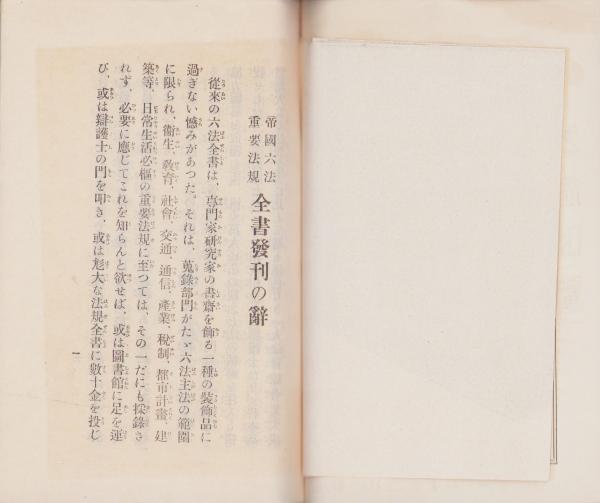 帝國六法
重要法規
全書發刊の辭
從來の六法全書は、專門家研究家の書齋を飾る一種の裝飾品に
過ぎない憾みがあつた。それは、蒐錄部門がたゞ六法主法の範圍
に限られ、衞生、敎育、社會、交通、通信、產業、稅制、都市計畫、建
築等、日常生活必樞の重要法規に至つては、その一だにも採錄さ
れず、必要に應じてこれを知らんと欲せば、或は圖書館に足を運
び、或は辯護士の門を叩き、或は尨大な法規全書に數十金を投じ
一